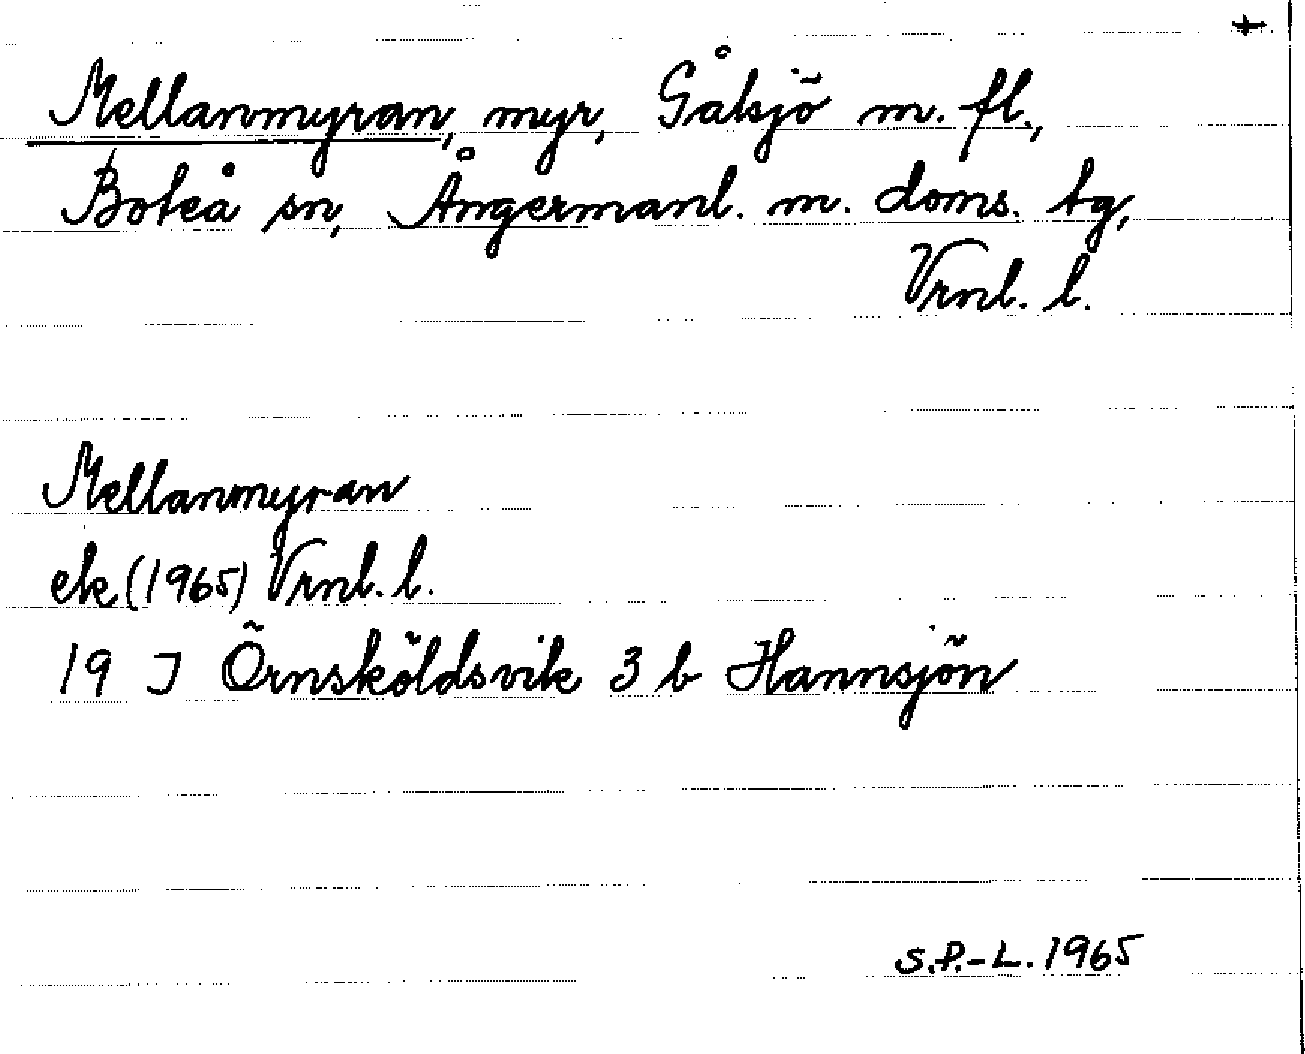 +
Mellanmyran, myr, Gålsjö m. fl.,
Boteå sn, Ångermanl. m. doms. tg,
Vrnl. l.
Mellanmyran
ek (1965) Vrnl. l.
19 J Örnsköldsvik 3 b Hannsjön
S.P.-L. 1965